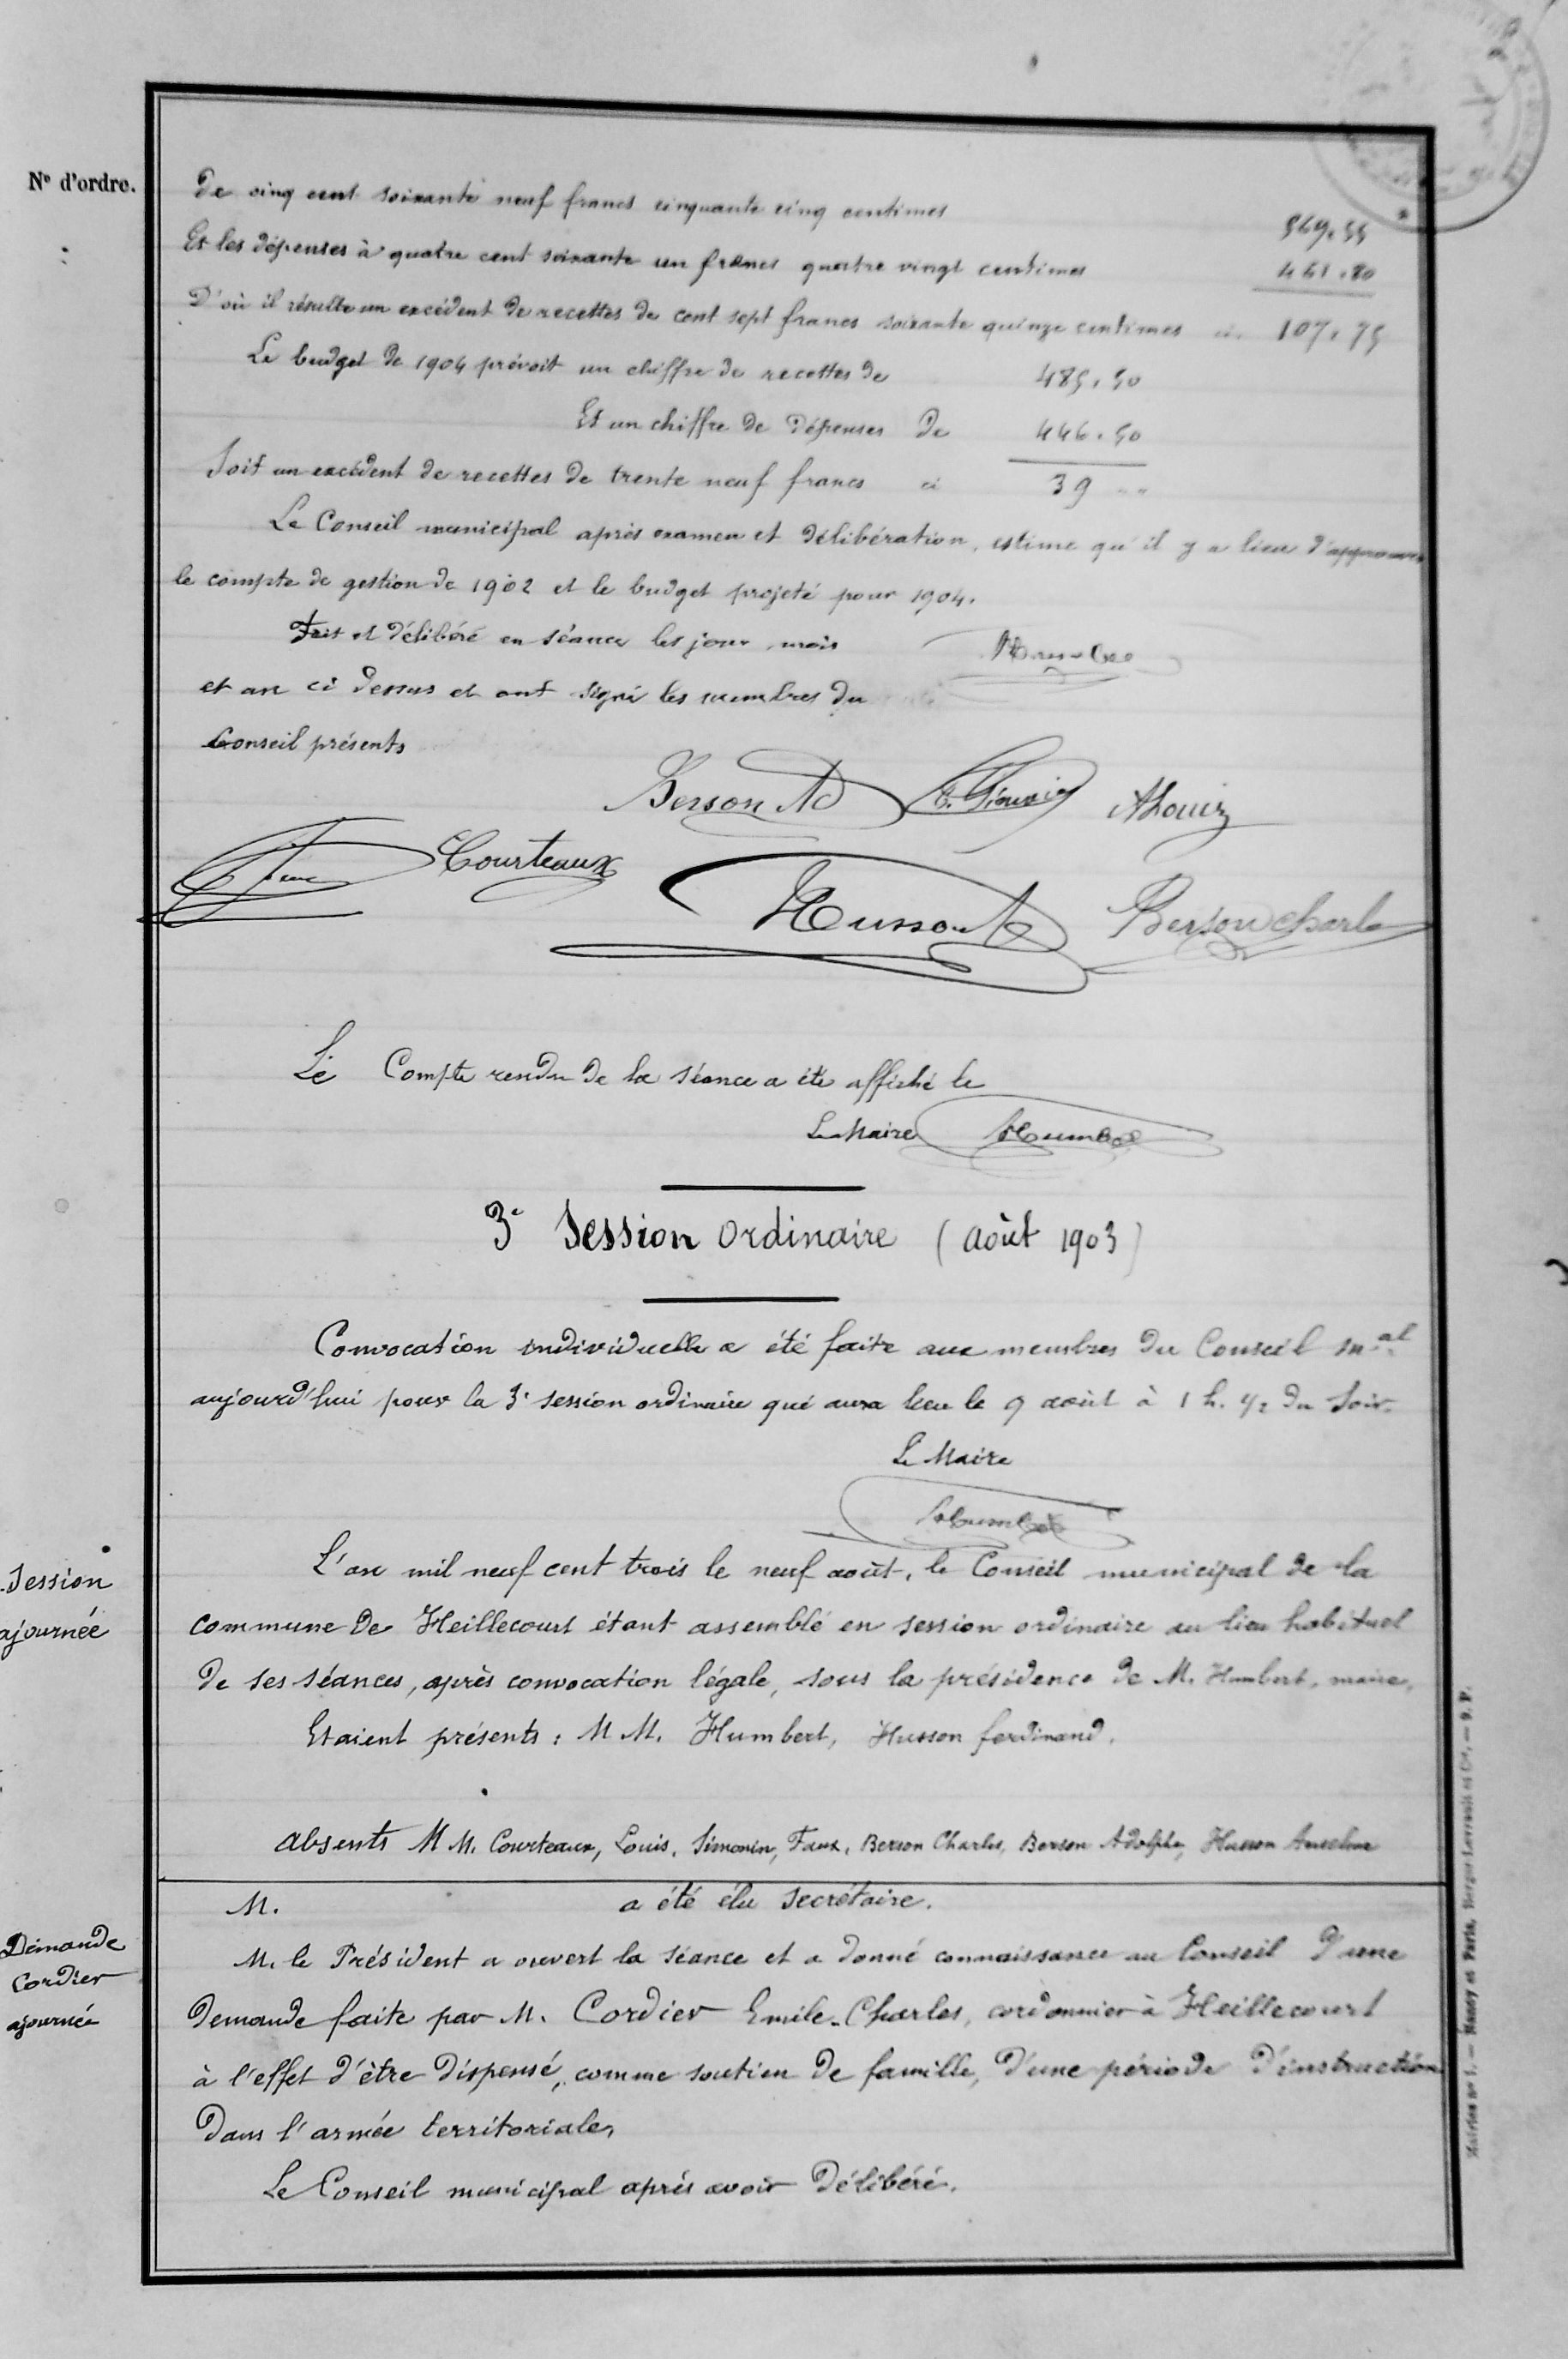 N° d'ordre.
De cinq cent soixante neuf francs cinquante cinq centimes 569,55
Et les dépenses à quatre cent soixante un francs quatre vingt centimes 461,80
D'où il résulte un excédent de recettes de cent sept francs soixante quinze centimes ci. 107,75
Le budget de 1904 prévoit un chiffre de recettes de 485,50
Et un chiffre de dépenses de 446,50
Soit un excédent de recettes de trente neuf francs ci 39 " "
Le Conseil municipal après examen et délibération, estime qu'il y a lieu d'approuver
le compte de gestion de 1902 et le budget projeté pour 1904.
Fait et délibéré en séance les jour, mois
et an ci dessus et ont signé les membres du
Conseil présents
Humbert
Berson Ad ALouis
Courteaux
Husson Berson Charles
Le Compte rendu de la séance a été affiché le
Le Maire Humbert
3e Session ordinaire (août 1903)
Convocation individuelle a été faite aux membres du Conseil mal
aujourd'hui pour la 3e session ordinaire qui aura lieu le 9 août à 1 h. 1/2 du soir.
Le Maire
Humbert
Session
ajournée
L'an mil neuf cent trois le neuf août, le Conseil municipal de la
commune de Heillecourt étant assemblé en session ordinaire au lieu habituel
de ses séances, après convocation légale, sous la présidence de M. Humbert, maire,
Etaient présents : M M. Humbert, Husson ferdinand.
Absents M M. Courteaux, Louis, Simonin, Faux, Berson Charles, Berson Adolphe, Husson Anselme
M. a été élu secrétaire.
Demande
Cordier
ajournée
M. le Président a ouvert la séance et a donné connaissance au Conseil d'une
demande faite par M. Cordier Emile-Charles, cordonnier à Heillecourt
à l'effet d'être dispensé, comme soutien de famille, d'une période d'instruction
dans l'armée territoriale,
Le Conseil municipal après avoir délibéré.
Mairies n° 1. — Nancy et Paris, Berger-Levrault et Cie. — 9. P.